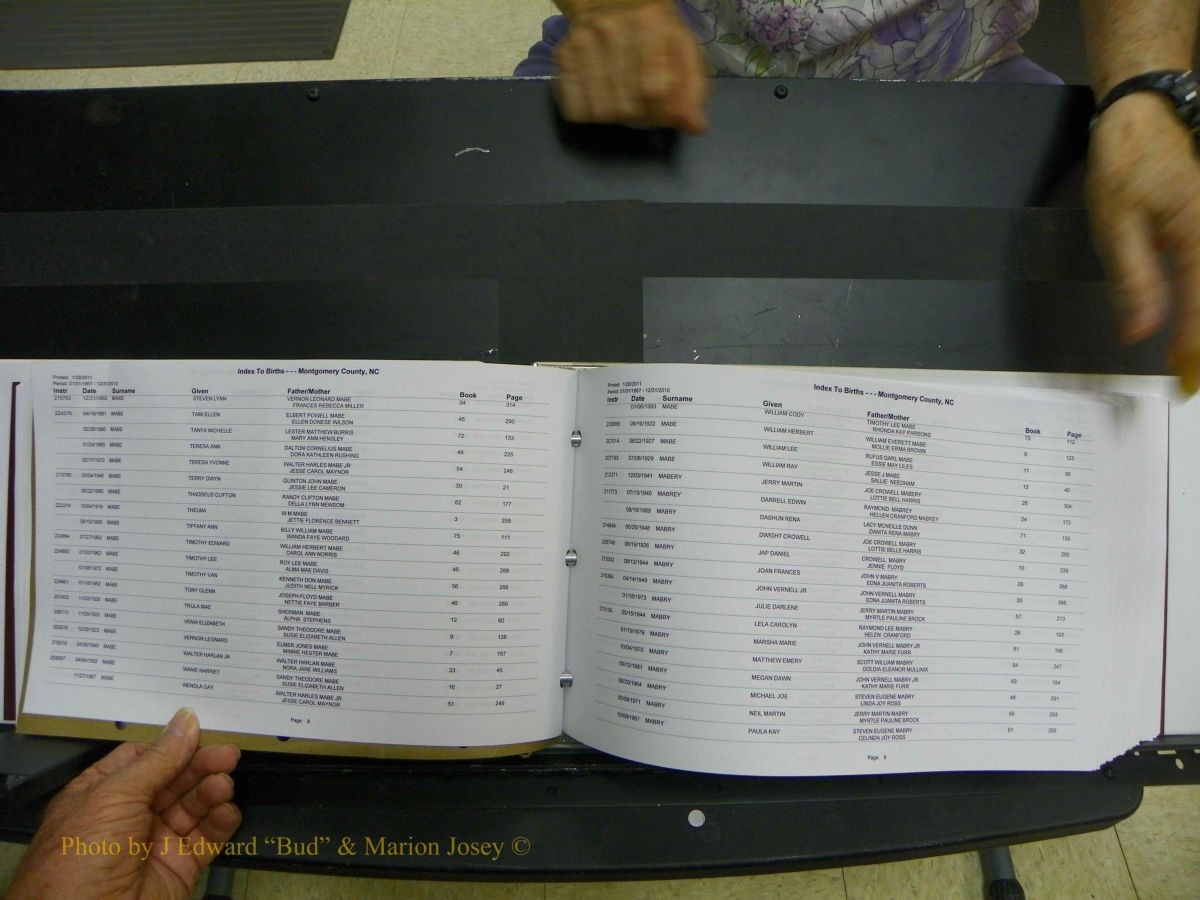 Printed: 1/28/2011
Period: 01/01/1867 - 12/31/2010
Index To Births - - - Montgomery County, NC
Instr Date Surname Given Father/Mother Book Page
MABE STEVEN LYNN VERNON LEONARD MABE 34 314
FRANCES REBECCA MILLER
MABE TAMI ELLEN ELBERT POWELL MABE 45 290
ELLEN DONESE WILSON
MABE TANYA MICHELLE LESTER MATTHEW BURRIS 72 133
MARY ANN HENSLEY
MABE TERESA ANN DALTON CORNELIUS MABE 49 225
DORA KATHLEEN RUSHING
MABE TERESA YVONNE WALTER HARLES MABE JR
JESSE CAROL MAYNOR
MABE TERRY GWYN QUINTON JOHN MABE 30 21
JESSIE LEE CAMERON
MABE THADDEUS CLIFTON RANDY CLIFTON MABE 62 177
DELLA LYNN NEWSOM
MABE THELMA W M MABE 3 259
JETTIE FLORENCE BENNETT
MABE TIFFANY ANN BILLY WILLIAM MABE 75 111
WANDA FAYE WOODARD
MABE TIMOTHY EDWARD WILLIAM HERBERT MABE 46 292
CAROL ANN NORRIS
MABE TIMOTHY LEE ROY LEE MABE 46 288
ALMA MAE DAVIS
MABE TIMOTHY VAN KENNETH DON MABE 56 266
JUDITH NELL MYRICK
MABE TONY GLENN JOSEPH FLOYD MABE 46 289
NETTIE FAYE BARBER
MABE TRULA MAE SHERMAN MABE 12 60
ALPHA STEPHENS
MABE VENIA ELIZABETH SANDY THEODORE MABE 9 138
SUSIE ELIZABETH ALLEN
MABE VERNON LEONARD ELMER JONES MABE 7 157
MINNIE HESTER MABE
MABE WALTER HARLAN JR WALTER HARLAN MABE 33 45
NORA JANE WILLIAMS
MABE WANIE HARRIET SANDY THEODORE MABE 16 27
SUSIE ELIZABETH ALLEN
11/27/1967 MABE WENDLA GAY WALTER HARLES MABE JR 51 249
JESSE CAROL MAYNOR
Page 8
Printed: 1/28/2011
Period: 01/01/1867 - 12/31/2010
Index To Births - - - Montgomery County, NC
Instr Date Surname Given Father/Mother Book Page
01/06/1993 MABE WILLIAM CODY TIMOTHY LEE MABE 75 112
RHONDA KAY PARSONS
09/19/1922 MABE WILLIAM HERBERT WILLIAM EVERETT MABE 6 123
MOLLIE ERMA BROWN
227014 06/22/1927 MABE WILLIAM LEE RUFUS GARL MABE 11
ESSIE MAY LILES
07/08/1929 MABE WILLIAM RAY JESSE J MABE 13 40
SALLIE NEEDHAM
212371 12/03/1941 MABERY JERRY MARTIN JOE CROWELL MABERY 104
LOTTIE BELL HARRIS
211773 07/13/1940 MABREY DARRELL EDWIN RAYMOND MABREY 24 172
HELLEN CRANFORD MABREY
08/10/1989 MABRY DASHUN RENA LACY MCNEILLE DUNN 71 135
DANITA RENA MABRY
06/26/1948 MABRY DWIGHT CROWELL JOE CROWELL MABRY 32 250
LOTTIE BELLE HARRIS
06/19/1926 MABRY JAP DANIEL CROWELL MABRY
JENNIE FLOYD
08/13/1944 MABRY JOAN FRANCES JOHN V MABRY 28 268
EDNA JUANITA ROBERTS
04/14/1949 MABRY JOHN VERNELL JR JOHN VERNELL MABRY 33
EDNA JUANITA ROBERTS
01/18/1973 MABRY JULIE DARLENE JERRY MARTIN MABRY 57 213
MYRTLE PAULINE BROCK
05/15/1944 MABRY LELA CAROLYN RAYMOND LEE MABRY 28 103
HELEN CRANFORD
01/19/1979 MABRY MARSHA MARIE JOHN VERNELL MABRY JR
KATHY MARIE FURR
10/04/1970 MABRY MATTHEW EMERY SCOTT WILLIAM MABRY 54 247
GOLDIA ELEANOR MULLINIX
MABRY MEGAN DAWN JOHN VERNELL MABRY JR 63 154
KATHY MARIE FURR
08/20/1964 MABRY MICHAEL JOE STEVEN EUGENE MABRY 48 291
LINDA JOY ROSS
MABRY NEIL MARTIN JERRY MARTIN MABRY
MYRTLE PAULINE BROCK
10/09/1967 MABRY PAULA KAY STEVEN EUGENE MABRY 51 250
CELINDA JOY ROSS
Page
Photo by J Edward “Bud” & Marion Josey ©